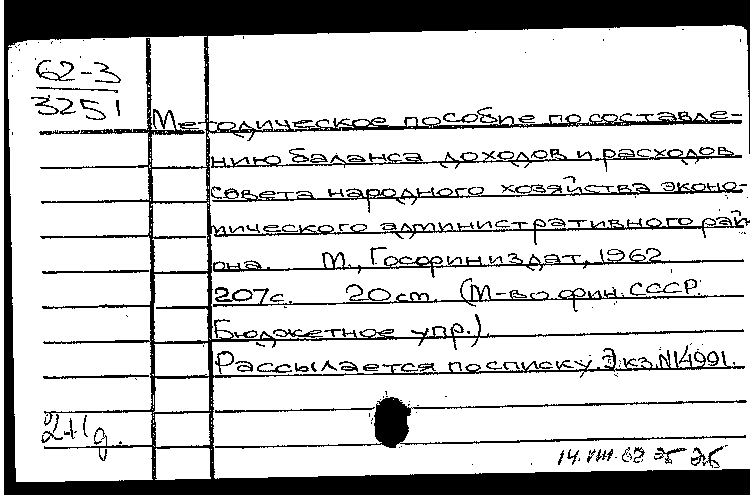 62-3
3251
Методическое пособие по составле-
нию баланса доходов и расходов
совета народного хозяйства эконо-
мического административного рай-
она. М., Госфиниздат, 1962
207 с. 20 см. (М-во фин. СССР.
Бюджетное упр.)
Рассылается по списку. Экз. N14991.
2+1д.
14.VIII.62 эб эб